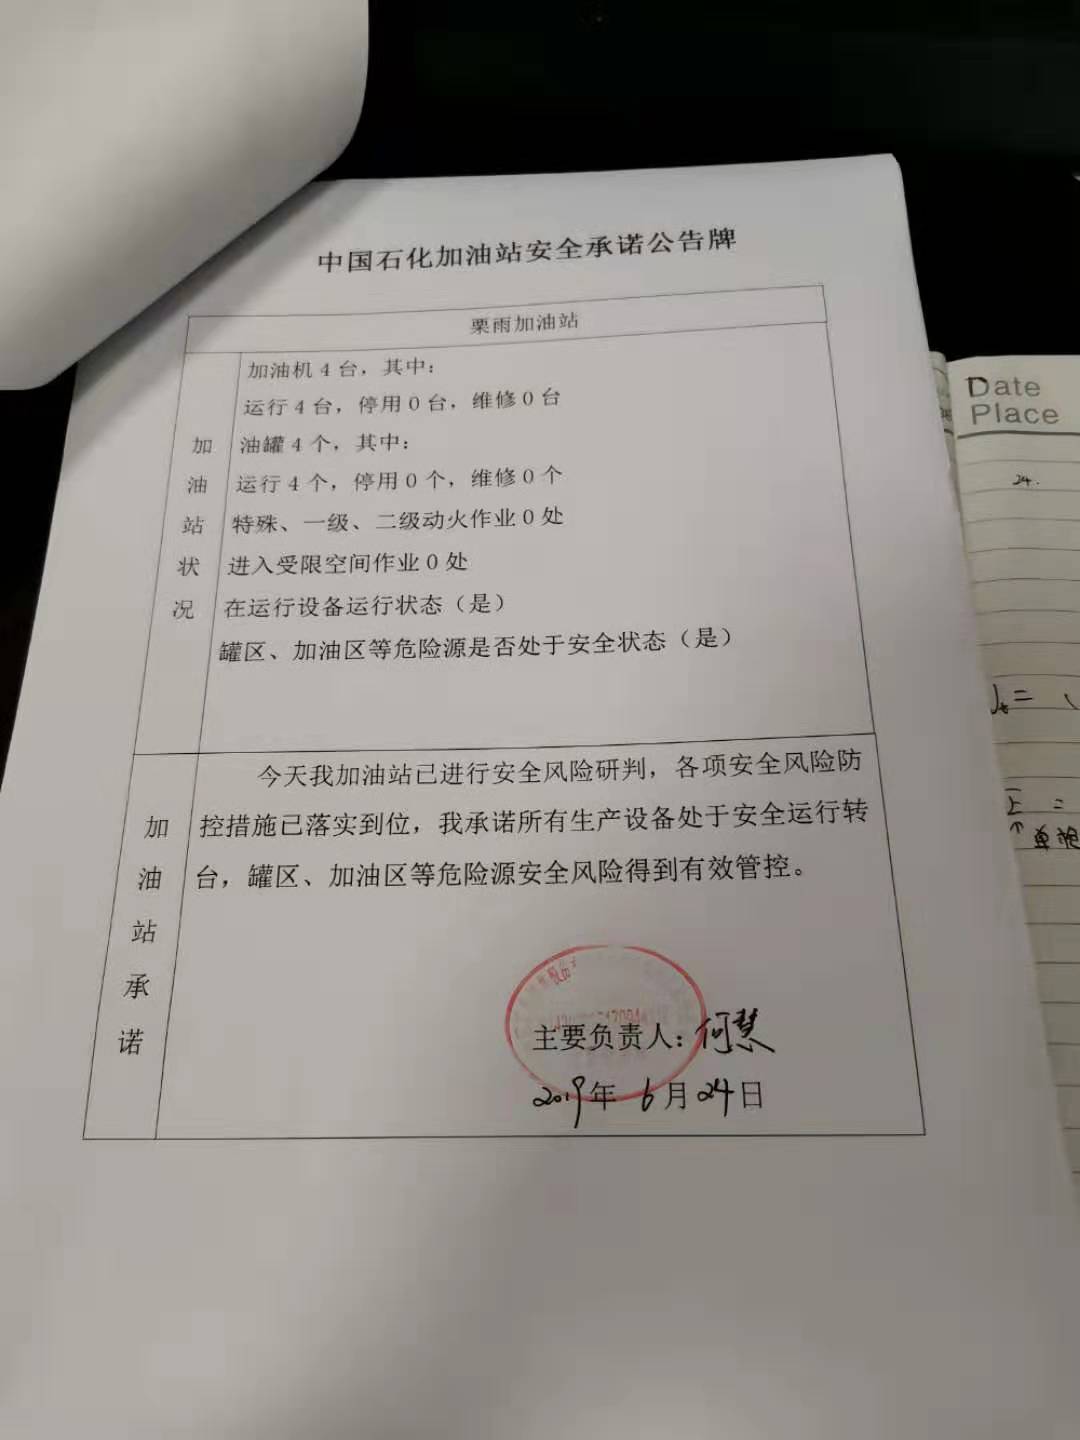 中国石化加油站安全承诺公告牌
栗雨加油站
加油站状况
加油机4台，其中：
运行4台，停用0台，维修0台
油罐4个，其中：
运行4个，停用0个，维修0个
特殊、一级、二级动火作业0处
进入受限空间作业0处
在运行设备运行状态（是）
罐区、加油区等危险源是否处于安全状态（是）
加油站承诺
今天我加油站已进行安全风险研判，各项安全风险防
控措施已落实到位，我承诺所有生产设备处于安全运行转
台，罐区、加油区等危险源安全风险得到有效管控。
主要负责人：何慧
2019年 6月24日
Date
Place
24.